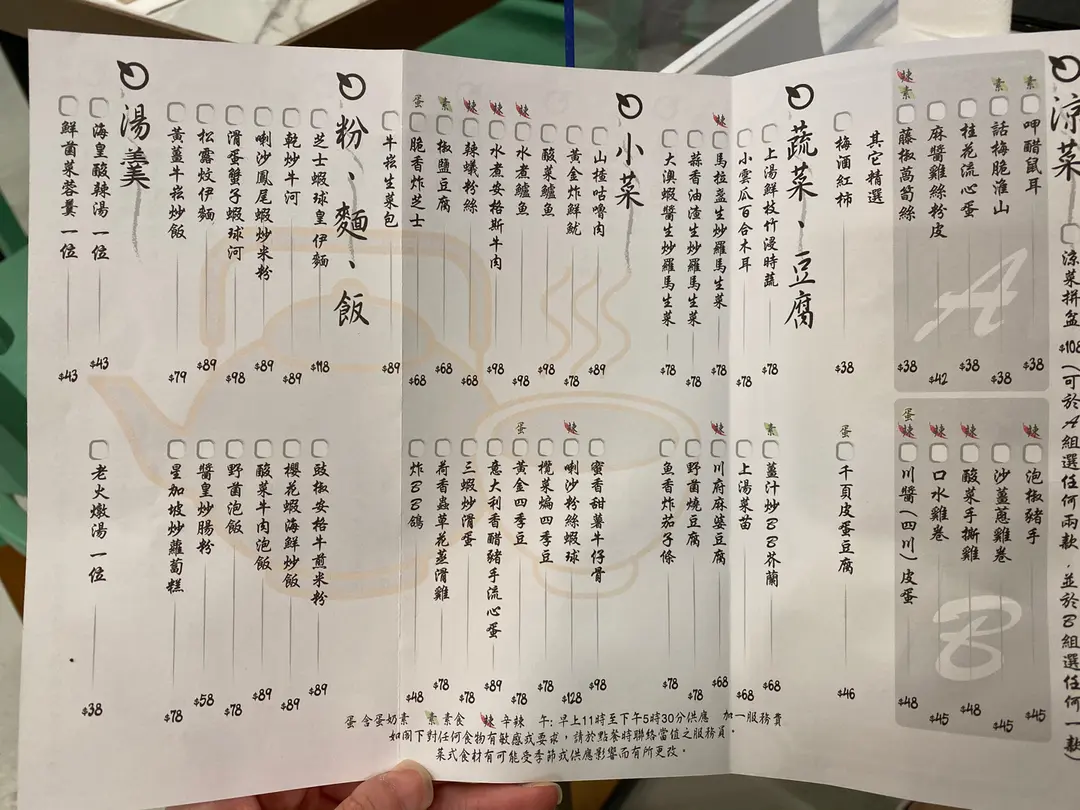 涼菜
涼菜拼盆 $108 (可於A組選任何兩款，並於B組選任何一款)
A
呷醋鼠耳 $38
素
話梅脆淮山 $38
素
桂花流心蛋 $38
麻醬雞絲粉皮 $42
藤椒萵筍絲 $38
辣 素
B
泡椒豬手 $45
辣
沙薑蔥雞卷 $45
酸菜手撕雞 $48
辣
口水雞卷 $45
辣
川醬(四川)皮蛋 $48
蛋 辣
其它精選
梅酒紅柿 $38
千頁皮蛋豆腐 $46
蛋
蔬菜、豆腐
上湯鮮枝竹浸時蔬 $78
小雲瓜百合木耳 $78
馬拉盞生炒羅馬生菜 $78
辣
蒜香油渣生炒羅馬生菜 $78
大澳蝦醬生炒羅馬生菜 $78
薑汁炒BB芥蘭 $68
素
上湯菜苗 $68
川府麻婆豆腐 $68
辣
野菌燒豆腐 $78
魚香炸茄子條 $78
小菜
山楂咕嚕肉 $89
黃金炸鮮魷 $78
酸菜鱸魚 $98
水煮鱸魚 $98
辣
水煮安格斯牛肉 $98
辣
辣蟻粉絲 $68
辣
椒鹽豆腐 $68
素
脆香炸芝士 $68
蛋
牛崧生菜包 $89
蜜香甜薯牛仔骨 $98
喇沙粉絲蝦球 $128
辣
欖菜煸四季豆 $78
黃金四季豆 $78
蛋
意大利香醋豬手流心蛋 $89
三蝦炒滑蛋 $78
荷香蟲草花蒸滑雞 $78
炸BB鴿 $48
粉、麵、飯
芝士蝦球皇伊麵 $118
乾炒牛河 $89
喇沙鳳尾蝦炒米粉 $89
滑蛋蟹子蝦球河 $98
松露炆伊麵 $89
黃薑牛崧炒飯 $79
豉椒安格牛煎米粉 $89
櫻花蝦海鮮炒飯 $89
酸菜牛肉泡飯 $89
野菌泡飯 $78
醬皇炒腸粉 $58
星加坡炒蘿蔔糕 $78
湯羹
海皇酸辣湯 一位 $43
鮮菌菜蓉羹 一位 $43
老火燉湯 一位 $38
蛋 含蛋奶素 素 素食 辣 辛辣 午: 早上11時至下午5時30分供應 加一服務費
如閣下對任何食物有敏感或要求，請於點餐時聯絡當值之服務員。
菜式食材有可能受季節或供應影響而有所更改。